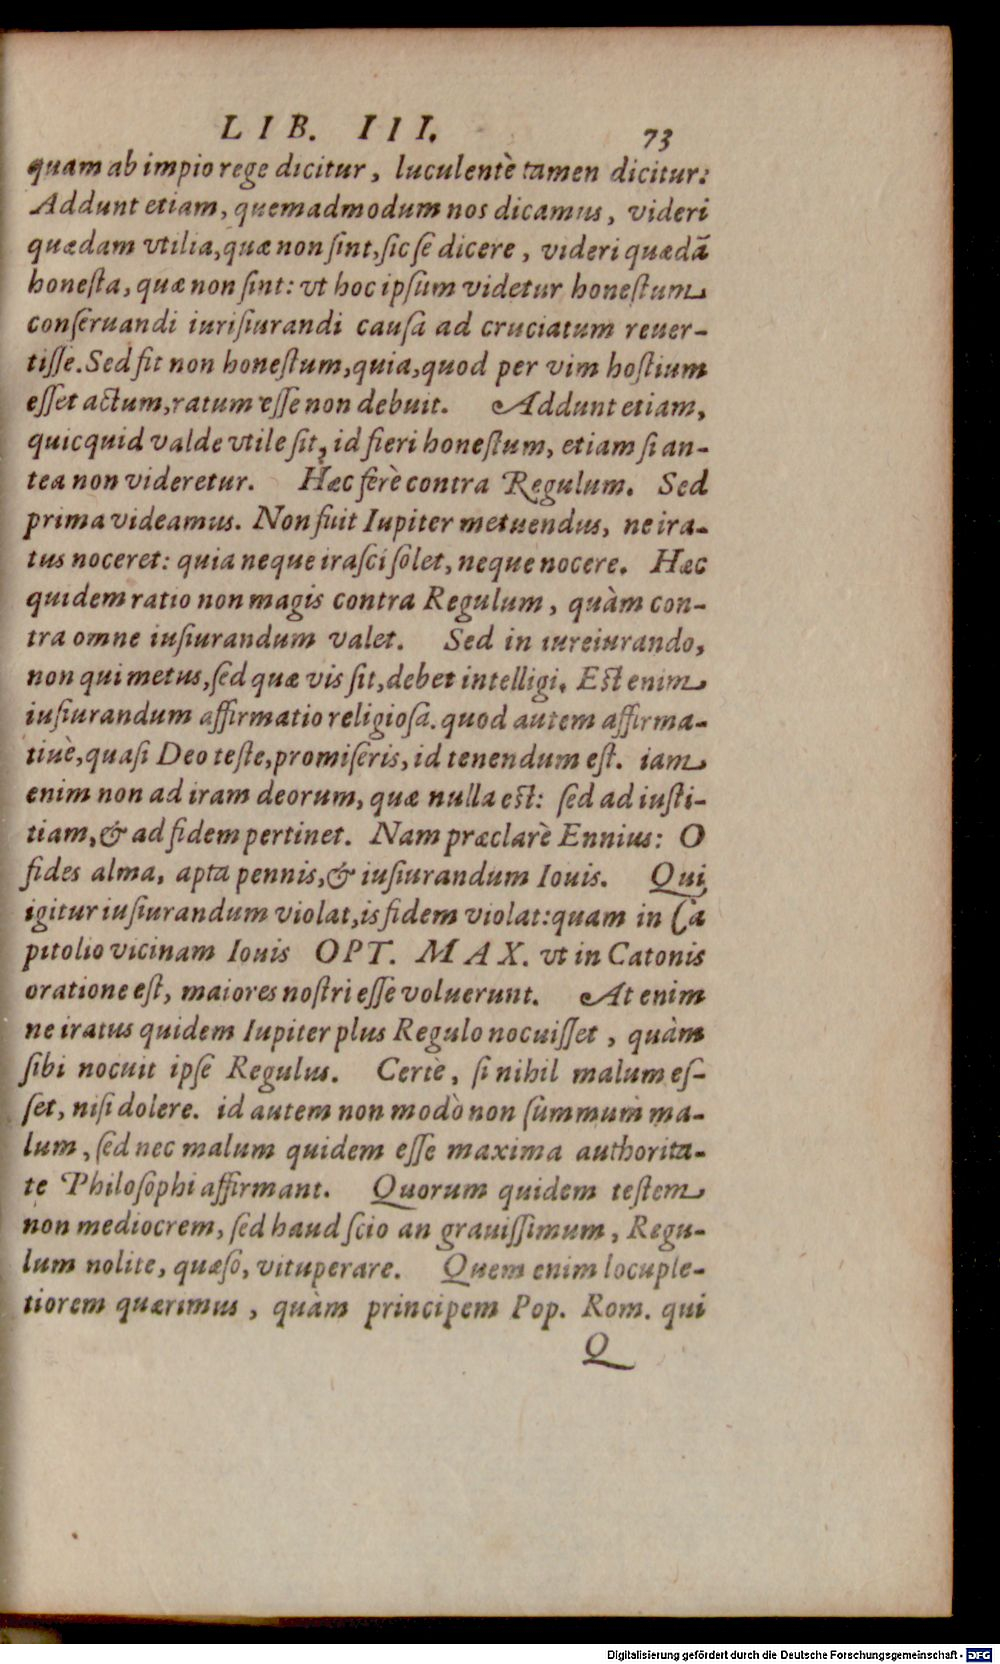 LIB. III. 73
quam ab impio rege dicitur, luculentè tamen dicitur:
Addunt etiam, quemadmodum nos dicamus, videri
quædam vtilia, quæ non ſint, ſic ſe dicere, videri quædā
honeſta, quæ non ſint: vt hoc ipſum videtur honeſtum
conſeruandi iuriſiurandi cauſa ad cruciatum reuer-
tiſſe. Sed fit non honeſtum, quia, quod per vim hoſtium
eſſet actum, ratum eſſe non debuit. Addunt etiam,
quicquid valde vtile ſit, id fieri honeſtum, etiam ſi an-
tea non videretur. Hæc ferè contra Regulum. Sed
prima videamus. Non fuit Iupiter metuendus, ne ira-
tus noceret: quia neque iraſci ſolet, neque nocere. Hæc
quidem ratio non magis contra Regulum, quàm con-
tra omne iuſiurandum valet. Sed in iureiurando,
non qui metus, ſed quæ vis ſit, debet intelligi. Eſt enim
iuſiurandum affirmatio religioſa. quod autem affirma-
tiuè, quaſi Deo teſte, promiſeris, id tenendum eſt. iam
enim non ad iram deorum, quæ nulla eſt: ſed ad iuſti-
tiam, & ad fidem pertinet. Nam præclarè Ennius: O
fides alma, apta pennis, & iuſiurandum Iouis. Qui
igitur iuſiurandum violat, is fidem violat: quam in Ca
pitolio vicinam Iouis OPT. MAX. vt in Catonis
oratione eſt, maiores noſtri eſſe voluerunt. At enim
ne iratus quidem Iupiter plus Regulo nocuiſſet, quàm
ſibi nocuit ipſe Regulus. Certè, ſi nihil malum eſ-
ſet, niſi dolere. id autem non modò non ſummum ma-
lum, ſed nec malum quidem eſſe maxima authorita-
te Philoſophi affirmant. Quorum quidem teſtem
non mediocrem, ſed haud ſcio an grauiſſimum, Regu-
lum nolite, quæſo, vituperare. Quem enim locuple-
tiorem quærimus, quàm principem Pop. Rom. qui
Q
Digitalisierung gefördert durch die Deutsche Forschungsgemeinschaft - DFG